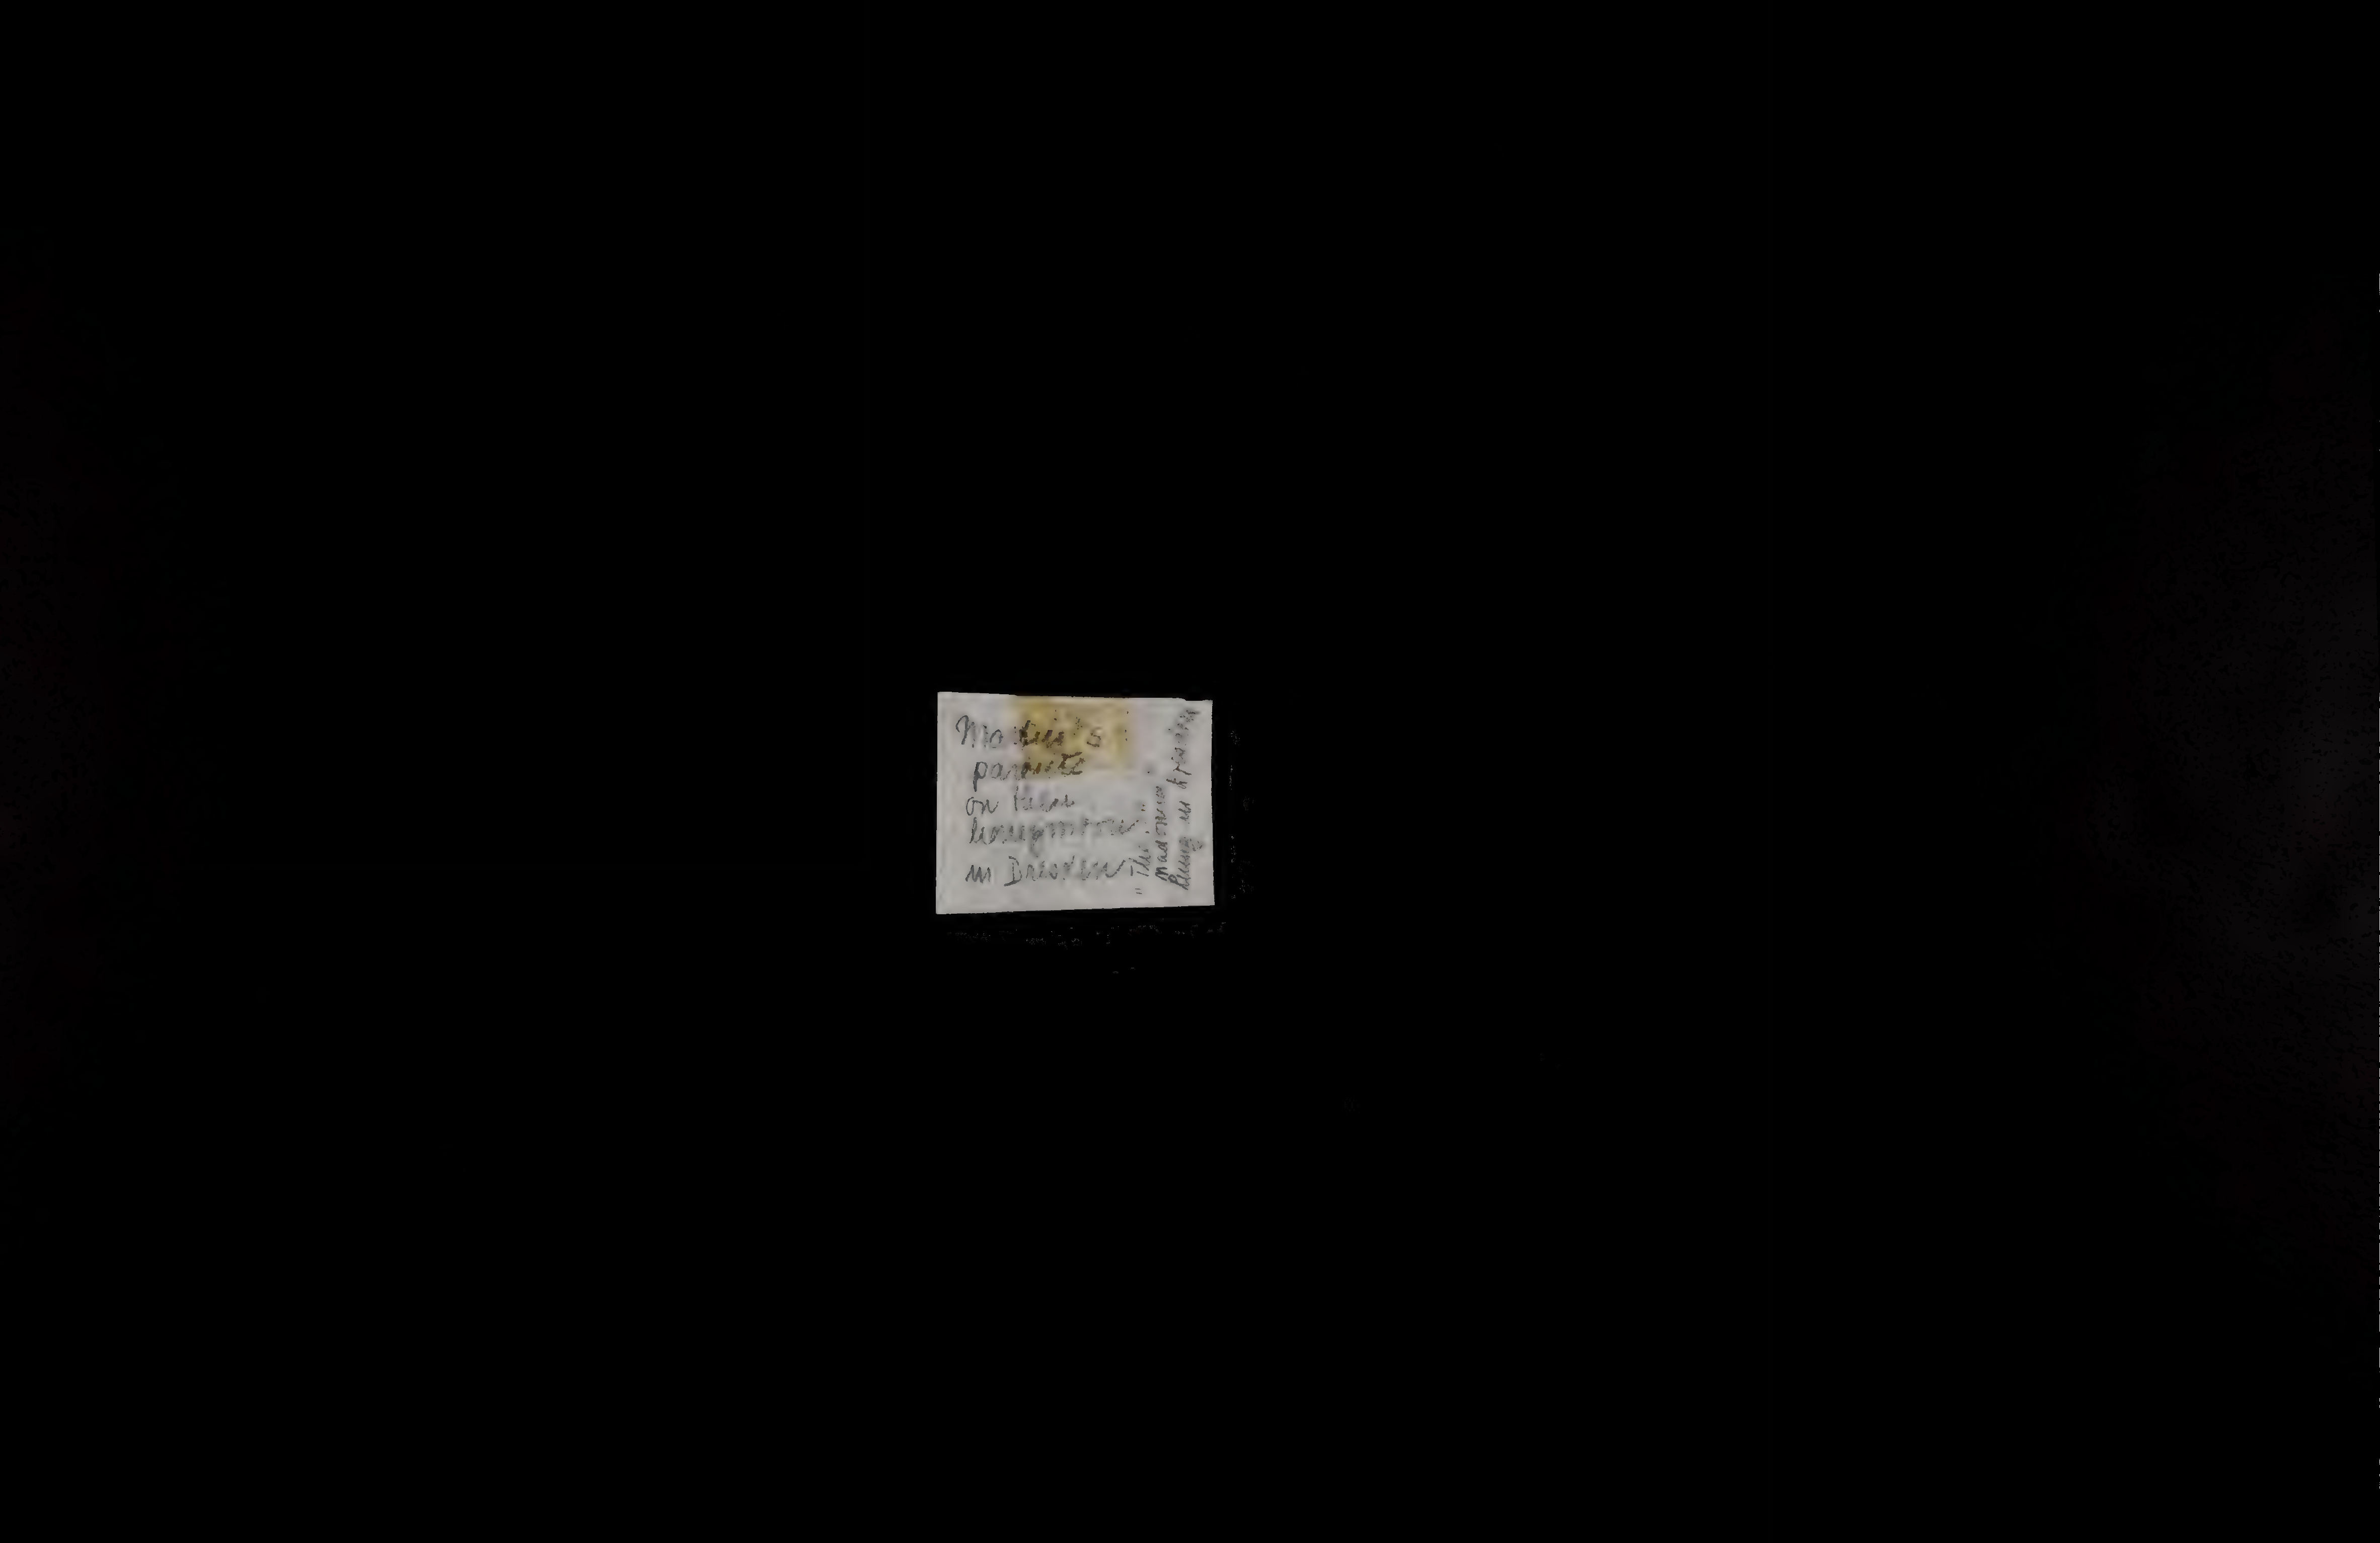 Martin's
parents
on their
honeymoon
in Dresden
"The
Madonna"
being in Dresden